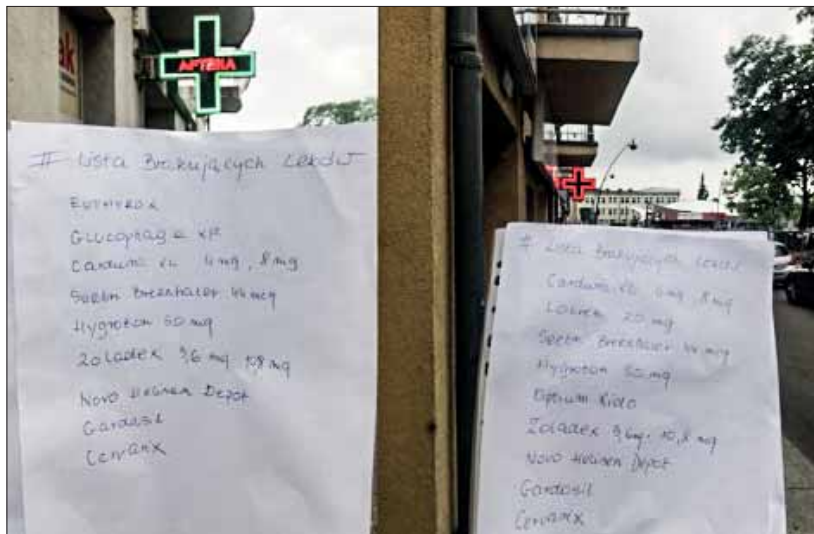 ak
APTEKA
II Lista Brakujących Leków
EUTHYROX
Glucophage XR
Cardura XL 4mg, 8mg
Seebri Breezhaler 44 mcg
Hygroton 50 mg
Zoladex 3,6 mg 10,8 mg
Novo Helisen Depot
Gardasil
Cervarix
I Lista Brakujących Leków
Cardura XL 4mg, 8mg
Lokren 20 mg
Seebri Breezhaler 44 mcg
Hygroton 50 mg
Optium Xido
Zoladex 3,6mg, 10,8 mg
Novo Helisen Depot
Gardasil
Cervarix